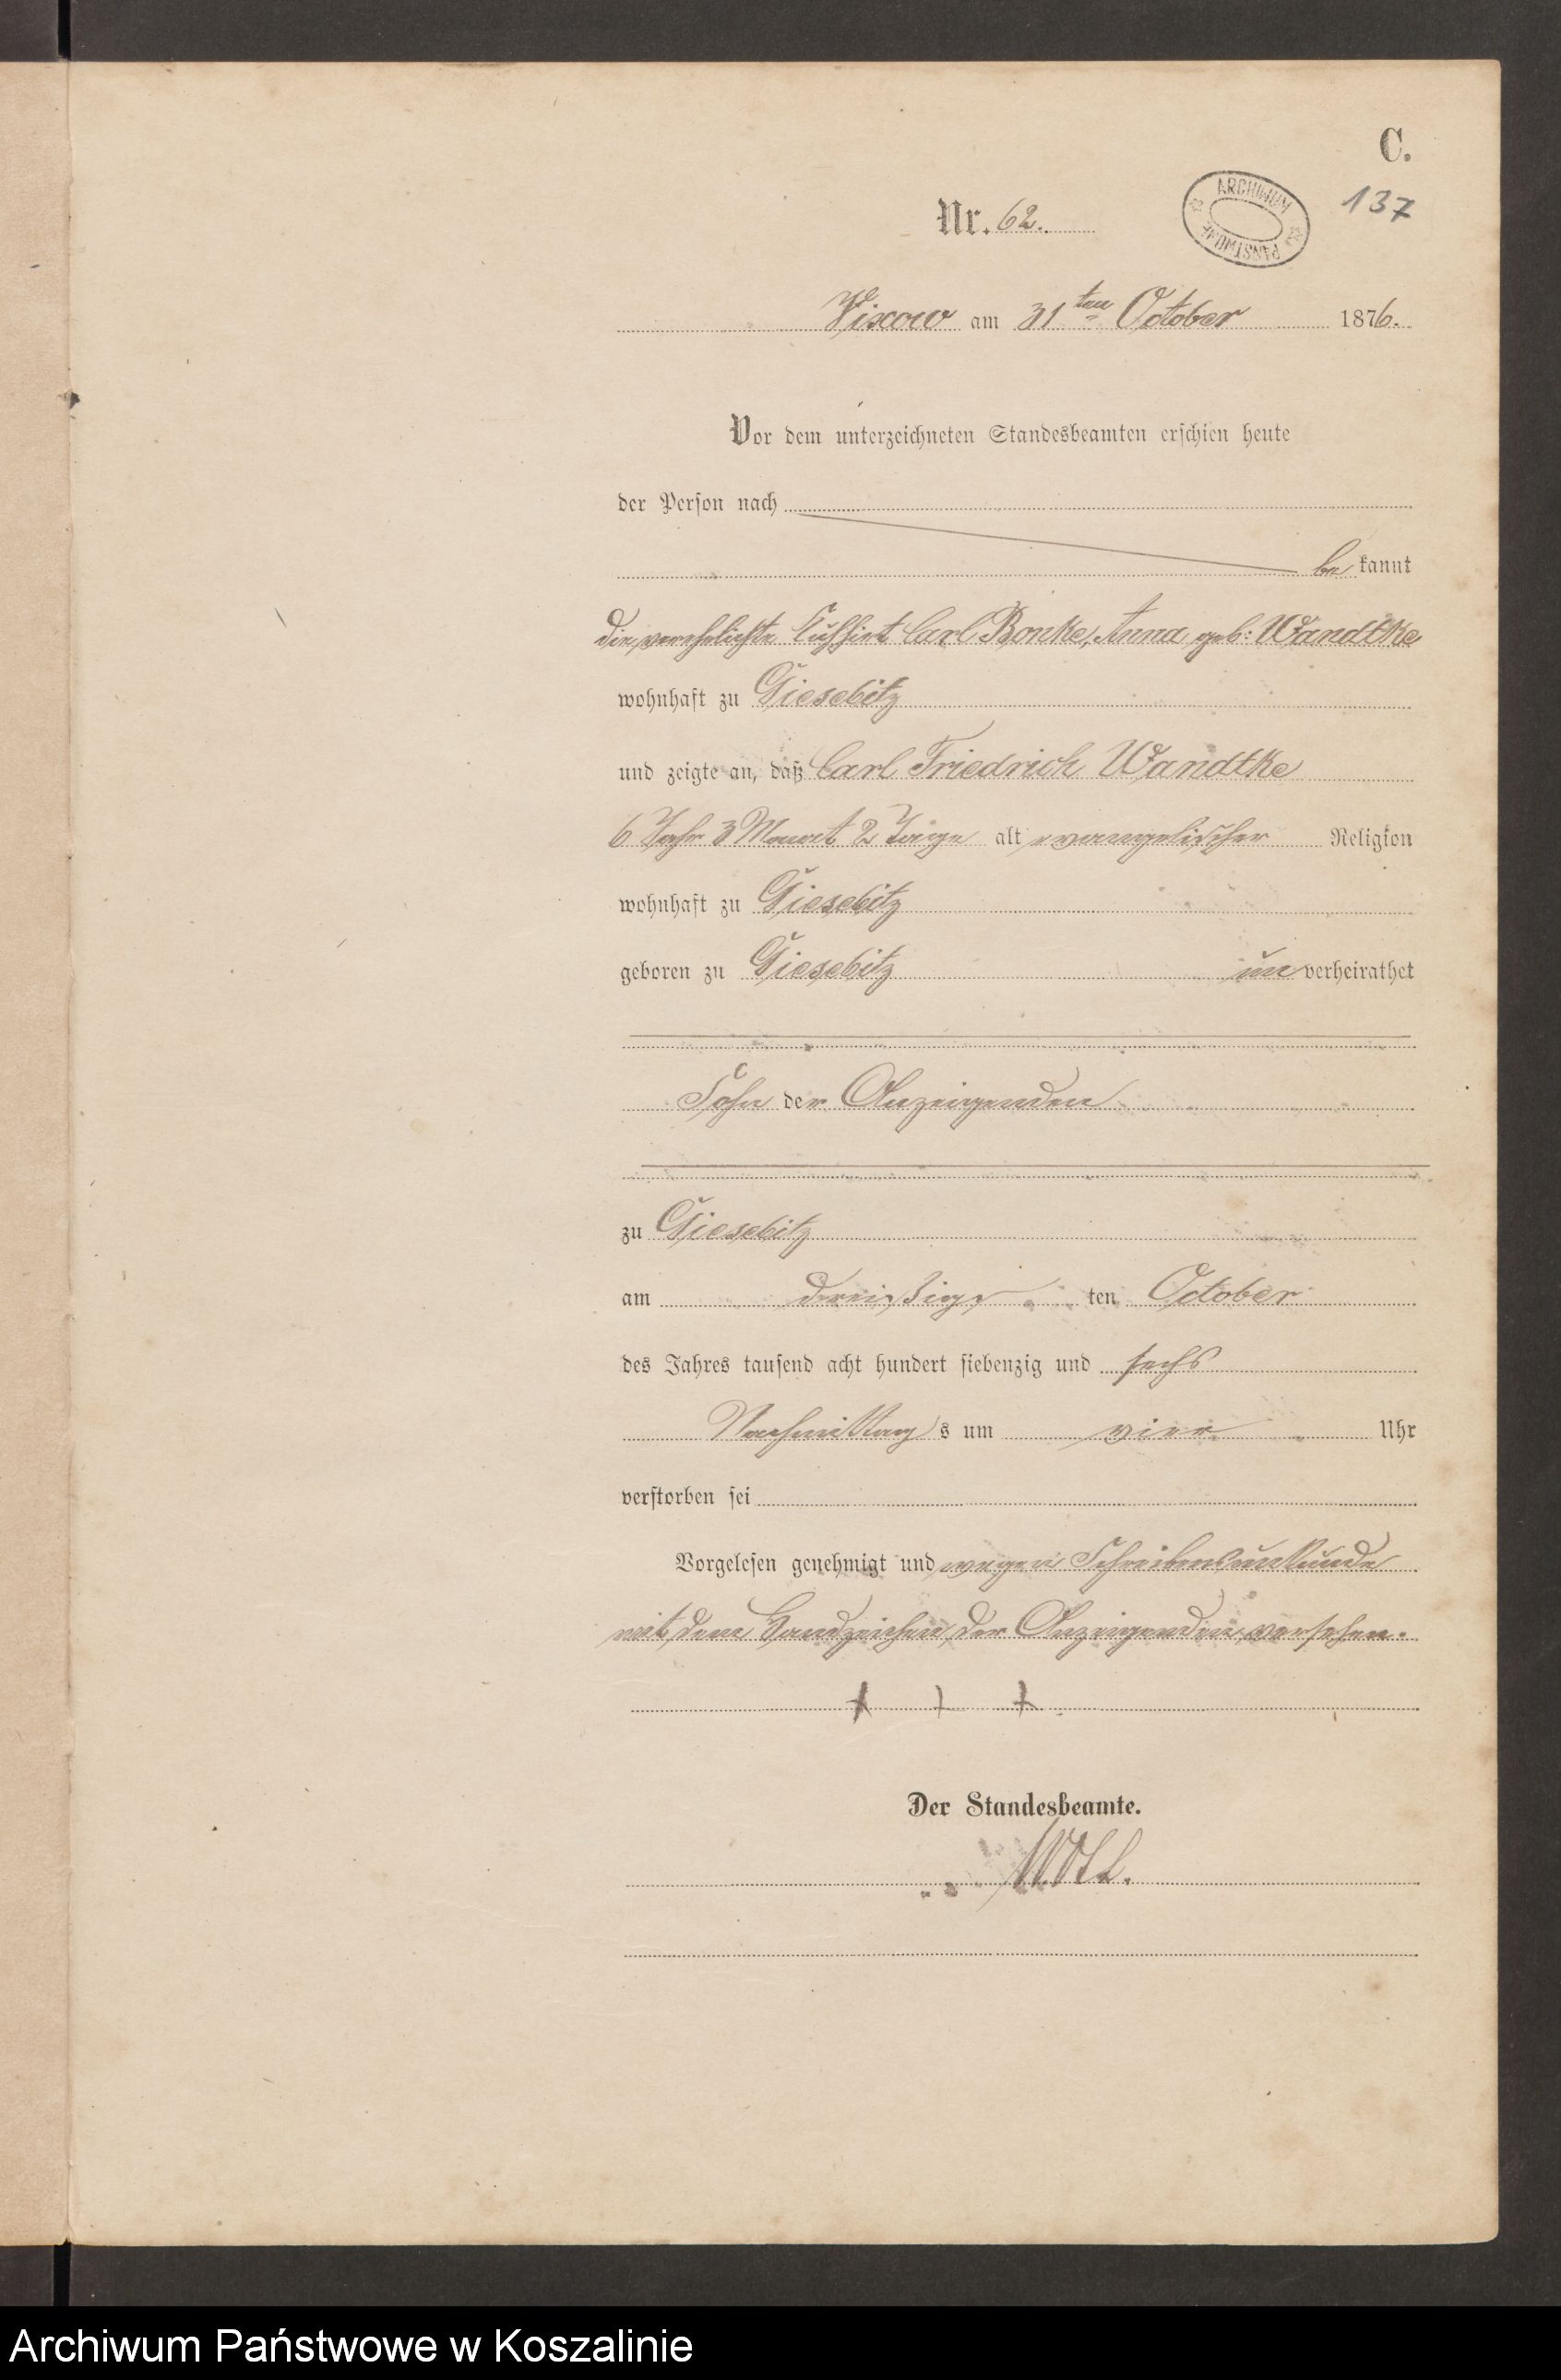 C.
ARCHIWUM PAŃSTWOWE
137
Nr. 62.
Vixow am 31ten October 1876.
Vor dem unterzeichneten Standesbeamten erschien heute
der Person nach
be kannt
die verehelichte Kuhhirt Carl Bonke, Anna geb: Wandtke
wohnhaft zu Giesebitz
und zeigte an, daß Carl Friedrich Wandtke
6 Jahr 3 Monat 2 Tage alt evangelischer Religion
wohnhaft zu Giesebitz
geboren zu Giesebitz un verheirathet
Sohn der Anzeigenden
zu Giesebitz
am dreißigs ten October
des Jahres tausend acht hundert siebenzig und sechs
Nachmittag s um vier Uhr
verstorben sei
Vorgelesen genehmigt und wegen Schreibensunkunde
mit dem Handzeichen der Anzeigenden versehen.
+ + +
Der Standesbeamte.
Archiwum Państwowe w Koszalinie